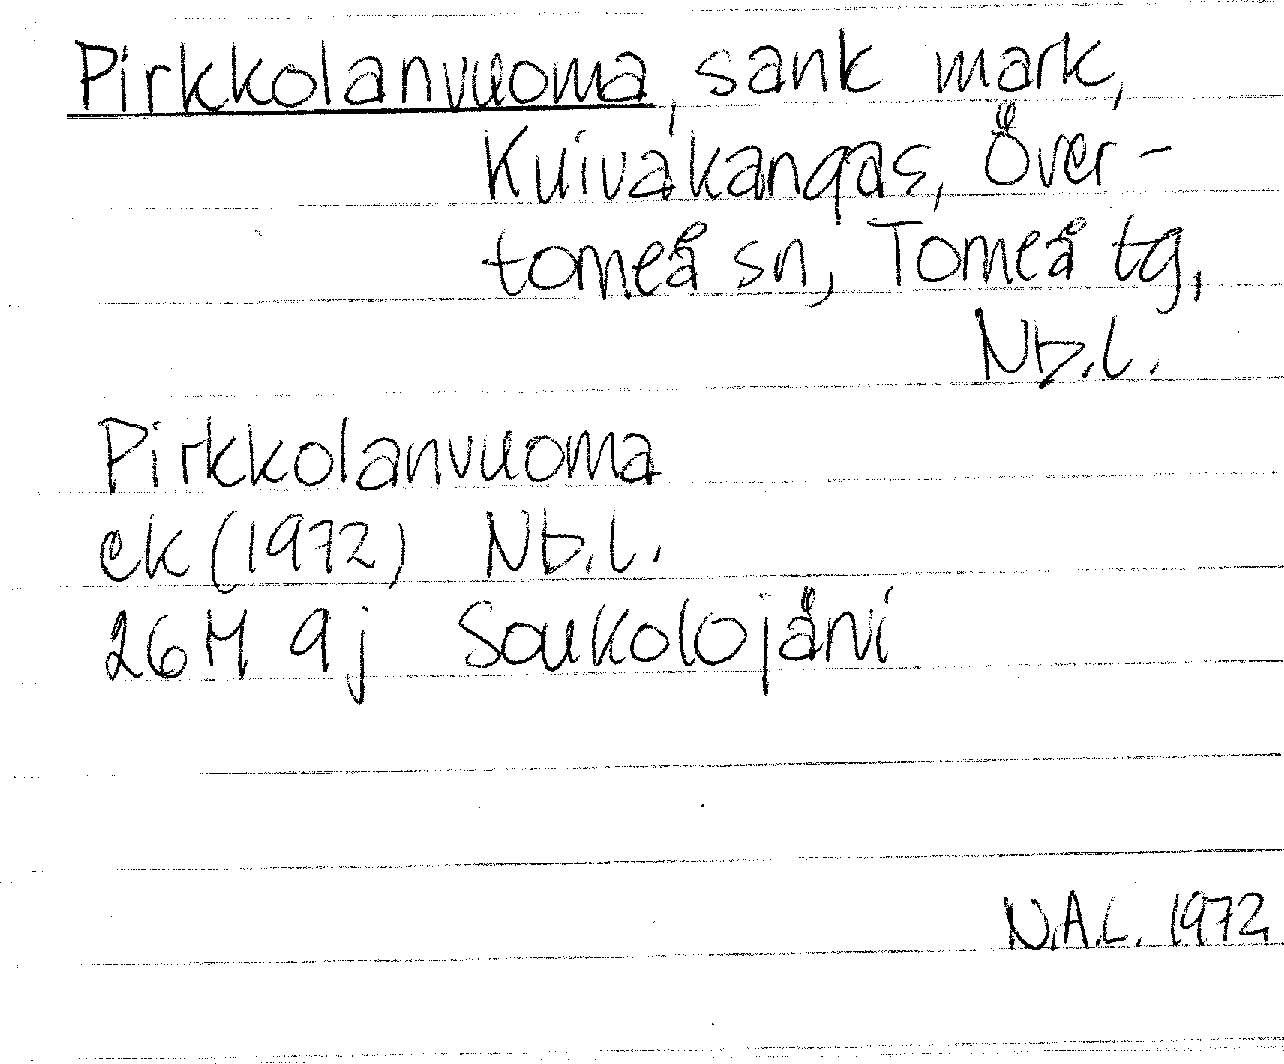 Pirkkolanvuoma, sank mark,
Kuivakangas, Över-
torneå sn, Torneå tg,
Nb.l.
Pirkkolanvuoma
ek (1972) Nb.l.
26M 9j Soukolojärvi
N.A.L. 1972